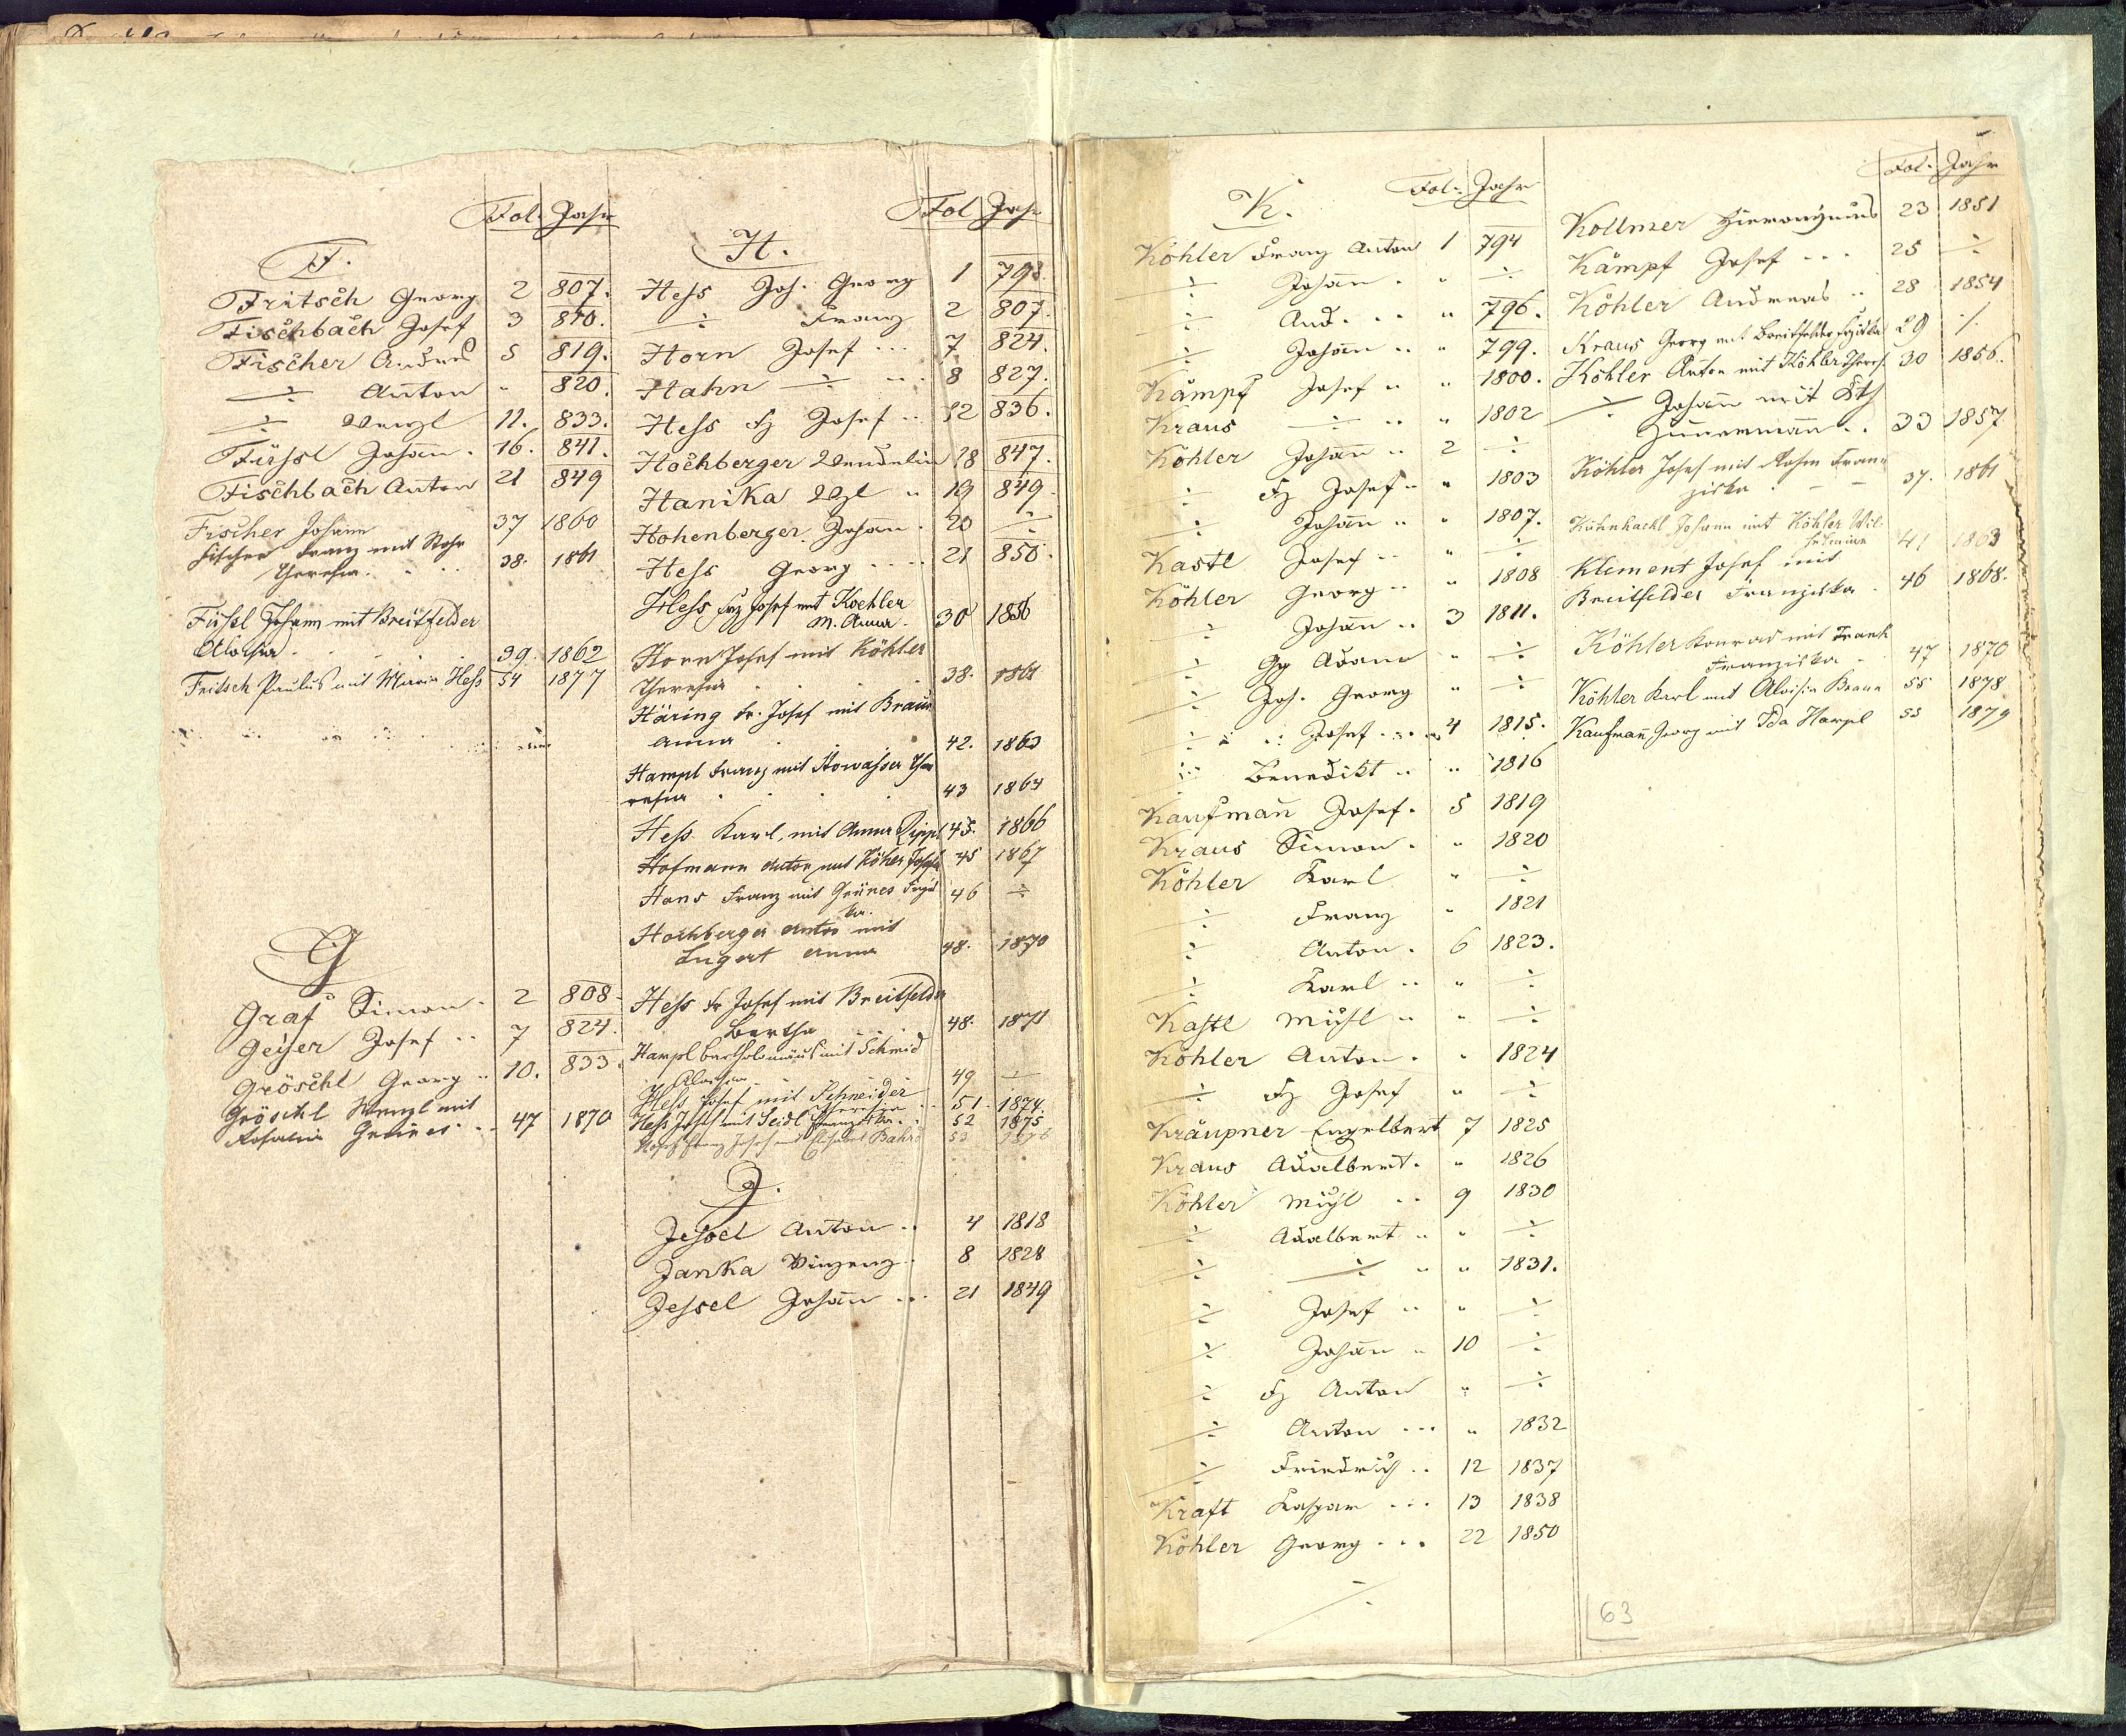 Fol. Jahr
F.
Fritsch Georg 2 807.
Fischbach Josef 3 810.
Fischer Andreas 5 819.
÷ Anton " 820.
÷ Wenzl 11. 833.
Füssl Johann . 16. 841.
Fischbach Anton 21 849
Fischer Johann 37 1860
Fischer Franz mit Rohr
Theresia. . . 38. 1861
Füssl Johann mit Breitfelder
Aloisia . . . 39. 1862
Fritsch Paulus mit Maria Hess 54 1877
G
Graf Simon . 2 808.
Geyser Josef .. 7 824.
Gröschl Georg .. 10. 833.
Gröschl Wenzl mit
Rosalia Grünes .. 47 1870
Fol Jahr
H.
Hess Joh. Georg 1 798.
÷ Franz 2 807.
Horn Josef ... 7 824.
Hahn ÷ ... 8 827.
Hess Fz Josef .. 12 836.
Hochberger Wendelin 18 847.
Hanika Wzl " 19 849.
Hohenberger Johann . 20 ÷
Hess Georg .... 21 850.
Hess Frz Josef mit Koehler
M. Anna . 30 1856
Horn Josef mit Köhler
Theresia . . . 38. 1861
Häring Fr. Josef mit Braun
Anna . . 42. 1863
Hampl Franz mit Howasser The
resia . . . 43 1864
Hess Karl, mit Anna Zippl 45. 1866
Hofmann Anton mit Köhler Josefa 45 1867
Hans Franz mit Grünes Fryd
ka. 46 ÷
Hochberger Anton mit
Lugert Anna 48. 1870
Hess Fr Josef mit Breitfelder
Bertha 48. 1871
Hampl Bartholomäus mit Schmid
Aloisia . . 49 ÷
Hess Josef mit Schneider
Theresia .. 51. 1874.
Hess Josef mit Seidl Franziska . 52 1875
Franz Josef mit 53
J.
Jessel Anton .. 4 1818
Janka Vinzenz . 8 1828
Jessel Johann ... 21 1849
K. Fol. Jahr
Köhler Franz Anton 1 794
÷ Johann . " ÷
÷ And. .. " 796.
÷ Johann .. " 799.
Kämpf Josef .. " 1800.
Kraus ÷ .. " 1802
Köhler Johann .. 2 ÷
÷ Fz Josef .. " 1803
÷ Johann .. " 1807.
Kastl Josef .. " ÷
Köhler Georg .. " 1808
÷ Johann .. 3 1811.
÷ Gg Adam " ÷
÷ Joh. Georg " ÷
÷ Josef .... 4 1815.
÷ Benedikt .. " 1816
Kaufmann Josef . 5 1819
Kraus Simon . " 1820
Köhler Karl " ÷
÷ Franz " 1821
÷ Anton . 6 1823.
÷ Karl .. " ÷
Kastl Michl .. " ÷
Köhler Anton . " 1824
÷ Fz Josef " ÷
Kräupner Engelbert 7 1825
Kraus Adalbert . " 1826
Köhler Michl .. 9 1830
÷ Adalbert .. " ÷
÷ ÷ .. " 1831.
÷ Josef .. " ÷
÷ Johann " 10 ÷
÷ Fz Anton " ÷
÷ Anton ... " 1832
÷ Friedrich .. 12 1837
Kraft Kaspar ... 13 1838
Köhler Georg ... 22 1850
÷
Fol. Jahr
Kollmer Hieronymus 23 1851
Kämpf Josef ... 25 ÷
Köhler Andreas .. 28 1854
Kraus Georg mit Breitfelder 29 ÷
Köhler Anton mit Köhler Theres. 30 1856.
÷ Johann mit Eth
Zimmermann .. 33 1857
Köhler Josef mit Rohm Fran
ziska . 37. 1861
Kühnhackl Johann mit Köhler Wil
helmina 41 1863
Kliment Josef mit
Breitfelder Franziska . 46 1868.
Köhler Konrad mit Frank
Franziska . 47 1870
Köhler Karl mit Aloisia Braun 55 1878
Kaufmann Georg mit Ida Hampl 55 1879
63